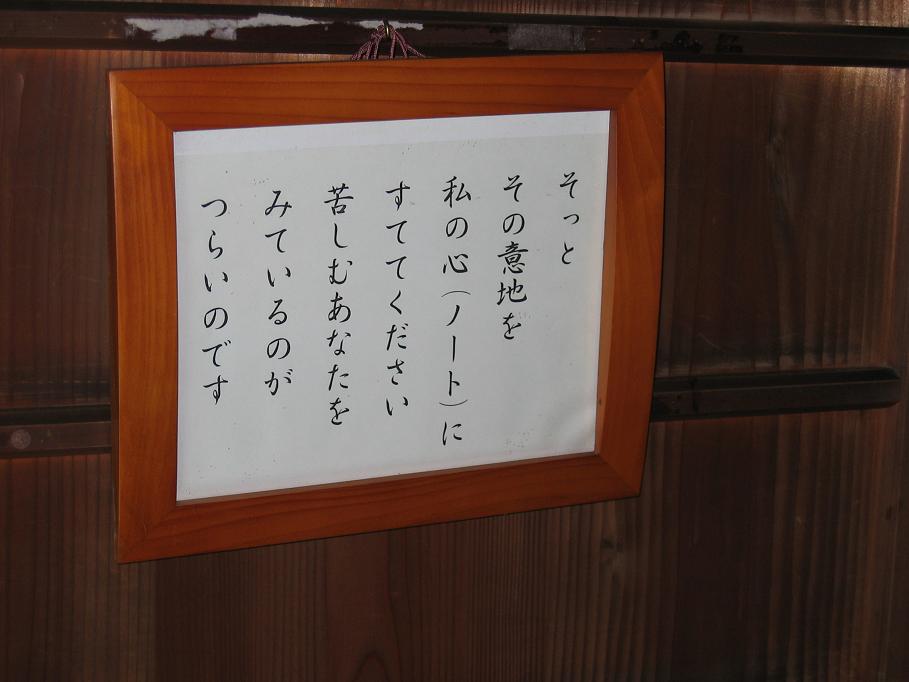 そっと
その意地を
私の心（ノート）に
すててください
苦しむあなたを
みているのが
つらいのです